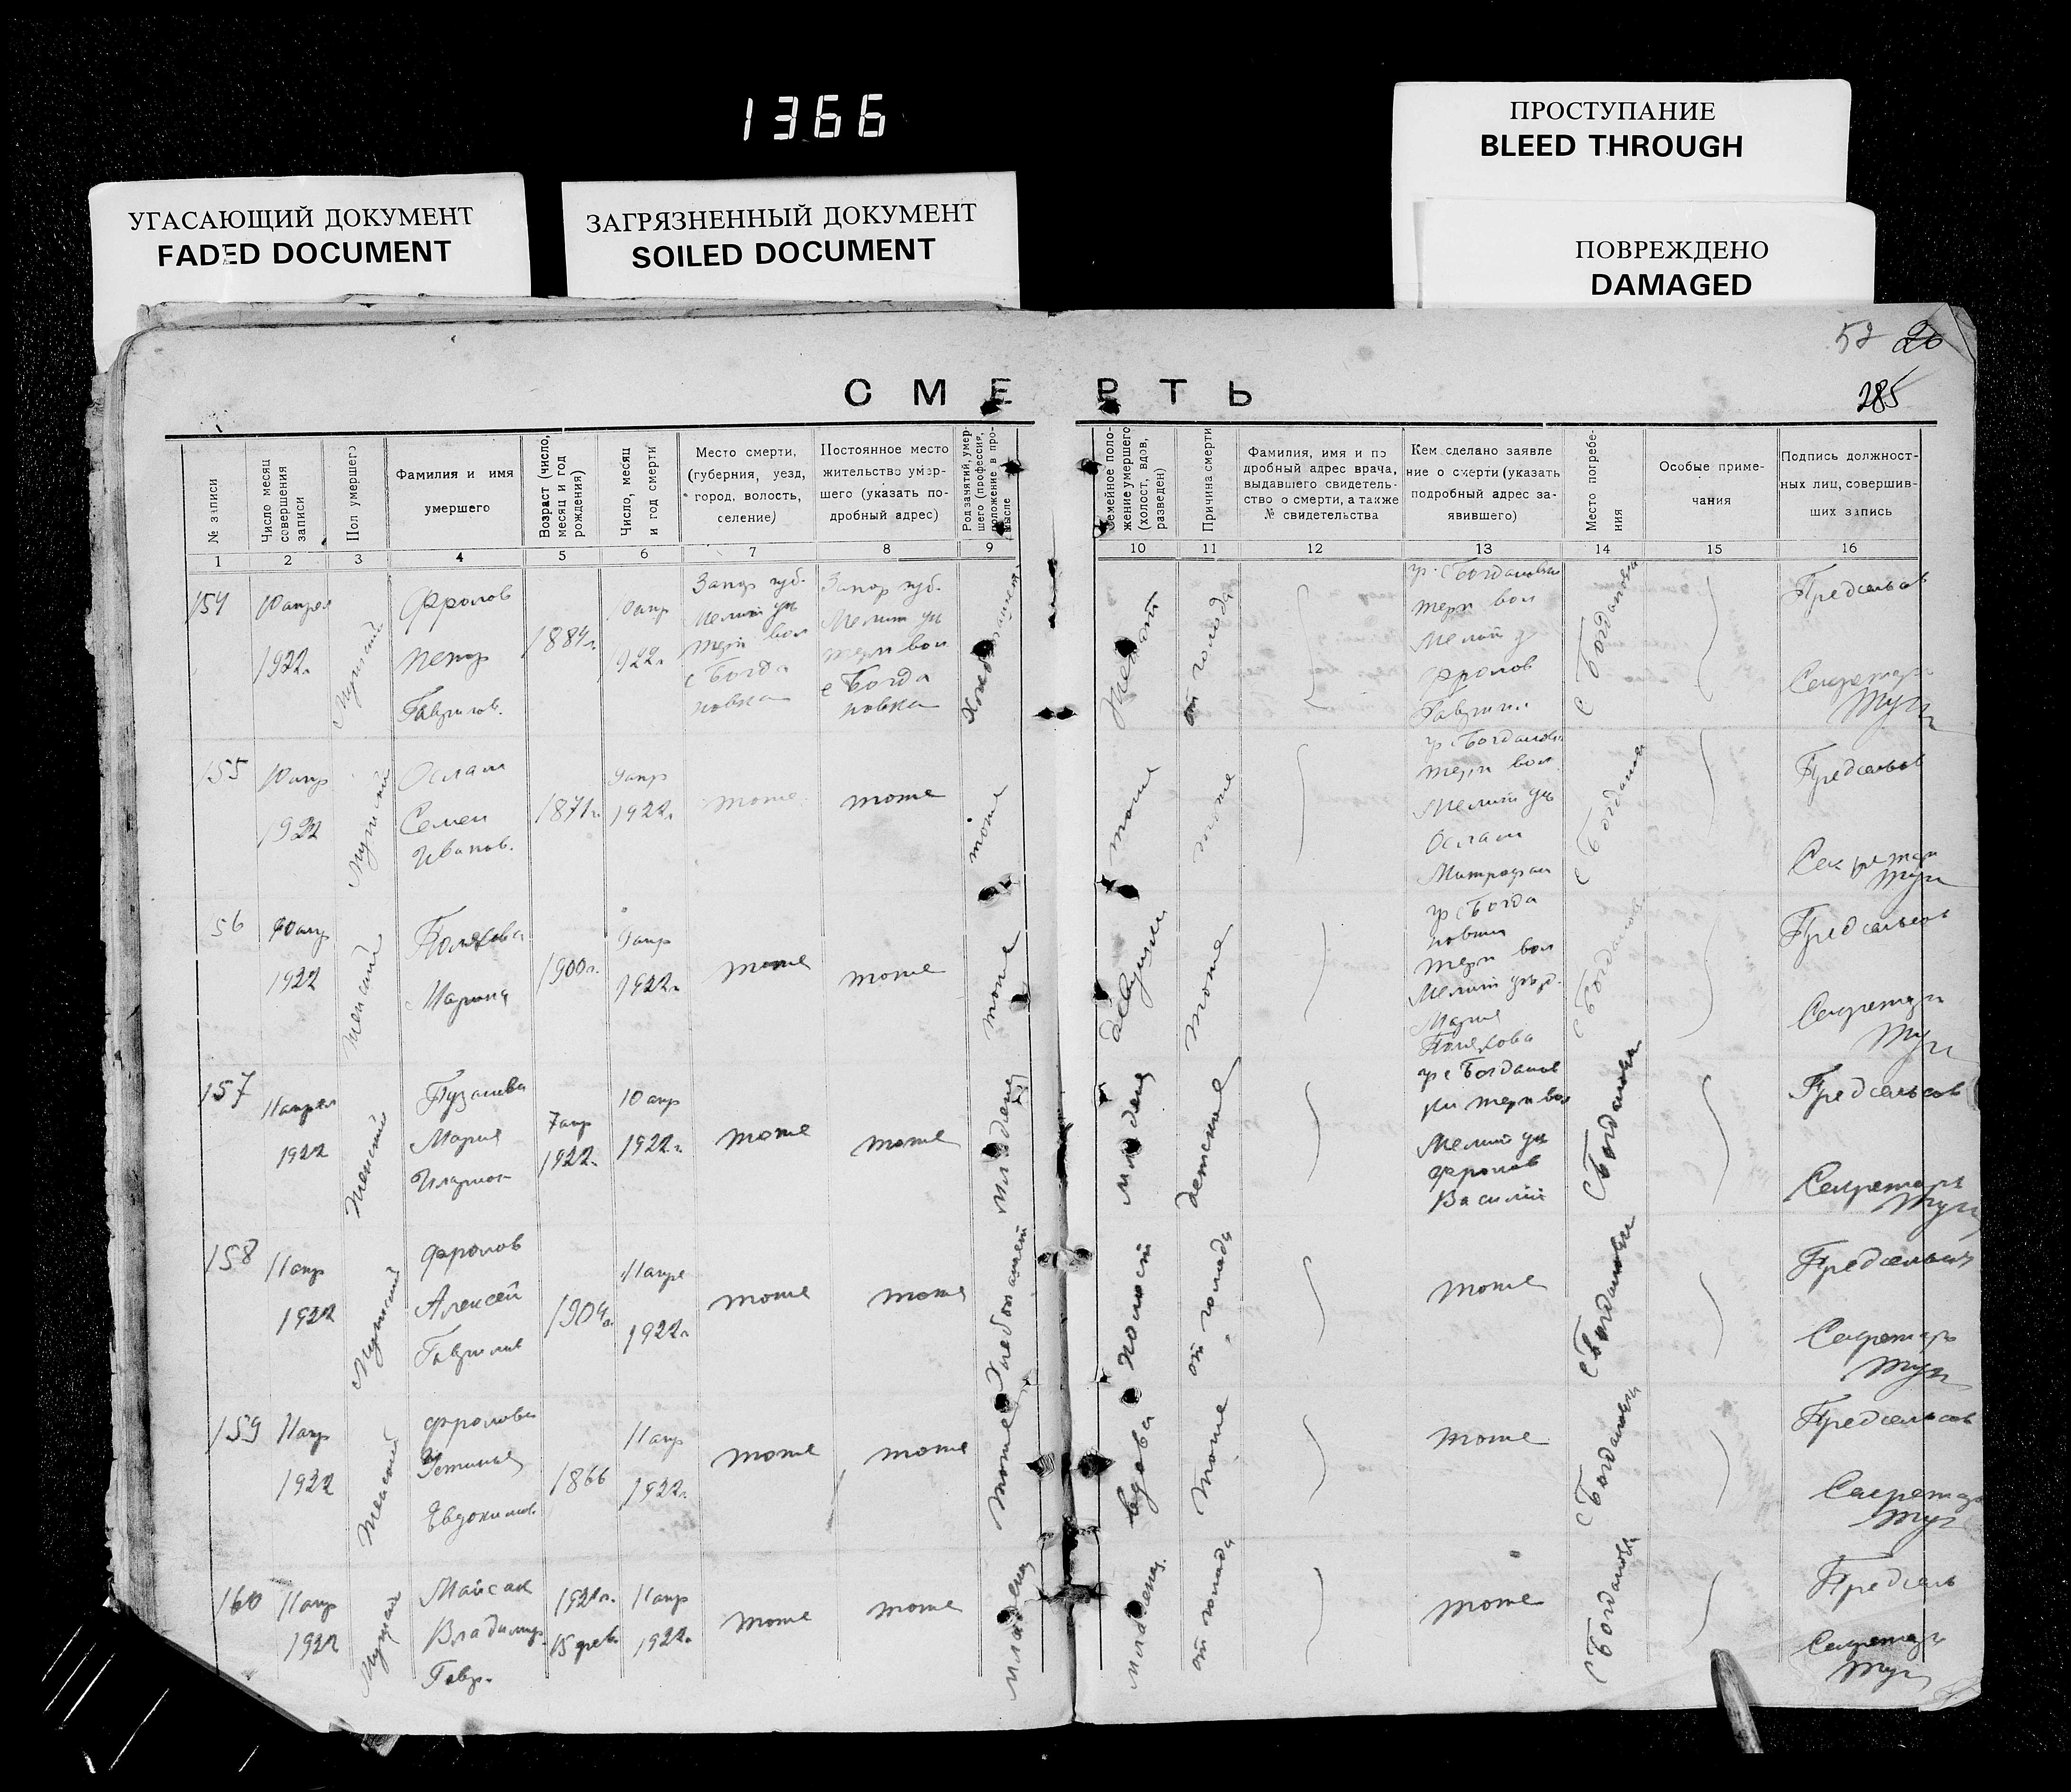 1366
ПРОСТУПАНИЕ
BLEED THROUGH
УГАСАЮЩИЙ ДОКУМЕНТ
FADED DOCUMENT
ЗАГРЯЗНЕННЫЙ ДОКУМЕНТ
SOILED DOCUMENT
ПОВРЕЖДЕНО
DAMAGED
52 26
СМЕРТЬ
285
№ записи
Число месяц
совершения
записи
Пол умершего
Фамилия и имя
умершего
Возраст (число,
месяц и год
рождения)
Число, месяц
и год смерти
Место смерти,
(губерния, уезд,
город, волость,
селение)
Постоянное место
жительство умер-
шего (указать по-
дробный адрес)
Род занятий, умер-
шего (профессия,
положение в про-
мысле
Семейное поло-
жение умершего
(холост, вдов,
разведен)
Причина смерти
Фамилия, имя и по
дробный адрес врача,
выдавшего свидетель-
ство о смерти, а также
№ свидетельства
Кем сделано заявле
ние о смерти (указать
подробный адрес за-
явившего)
Место погребе-
ния
Особые приме-
чания
Подпись должност-
ных лиц, совершив-
ших запись
1 2 3 4 5 6 7 8 9 10 11 12 13 14 15 16
154
10 апрел
1922г.
Мужской
Фролов
Петр
Гаврилов.
1884г.
10 апр
1922г.
Запор губ.
Мелит уез
терп вол
с Богда
новка
Запор губ.
Мелит уез
терп вол
с Богда
новка
Женат
от голода
гр. с Богдановки
терп вол
Мелит у
Фролов
Гаврил
с Богдановка
Предсельсов
Секретарь
155
10 апр
1922
Мужской
Ослам
Семен
Иванов.
1871г.
9 апр
1922г.
тоже
тоже
тоже
тоже
тоже
гр с Богдановки
терп вол
Мелит уез
Ослам
Митрофан
с Богдановка
Предсельсов
Секретарь
56
10 апр
1922
Женский
Полякова
Марина
1900г.
9 апр
1922г.
тоже
тоже
тоже
тоже
гр с Богда
новки
терп вол
Мелит уезд.
Мария
Полякова
с Богдановка
Предсельсов
Секретарь
157
11 апрел
1922
Женский
Мария
7 апр
1922г.
10 апр
1922г.
тоже
тоже
младенец
младенец
детские
гр с Богданов
ки терп вол
Мелит уез
Фролов
Василий
с Богдановка
Предсельсов
Секретарь
158
11 апр
1922
Мужской
Фролов
Алексей
Гаврилов
1904г.
11 апре
1922г.
тоже
тоже
Хлебопашест
холост
от голода
тоже
с Богдановка
Предсельсов
Секретарь
159
11 апр
1922
Женский
Фролова
Устинья
Евдокимов.
1866
11 апр
1922г.
тоже
тоже
тоже
вдова
тоже
тоже
с Богдановка
Предсельсов
Секретарь
160
11 апр
1922
Мужской
Майсак
Владимир
Гавр.
1921г.
15 фев
11 апр
1922г.
тоже
тоже
младенец
младенец.
от голода
тоже
с Богдановка
Предсель
Секретарь